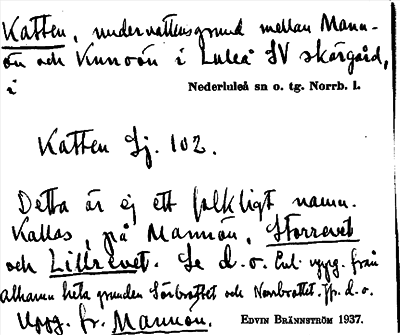 Katten, undervattensgrund mellan Mann-
ön och Kunoön i Luleå SV skärgård,
i Nederluleå sn o. tg. Norrb. l.
Katten Sj. 102.
Detta är ej ett folkligt namn.
Kallas på Mannön, Storrevet
och Lillrevet. Se d. o. Enl. uppg. från
Alhamn heta grunden Sörbrottet och Norrbrottet. Jfr. d. o.
Uppg. fr. Mannön. EDVIN BRÄNNSTRÖM 1937.